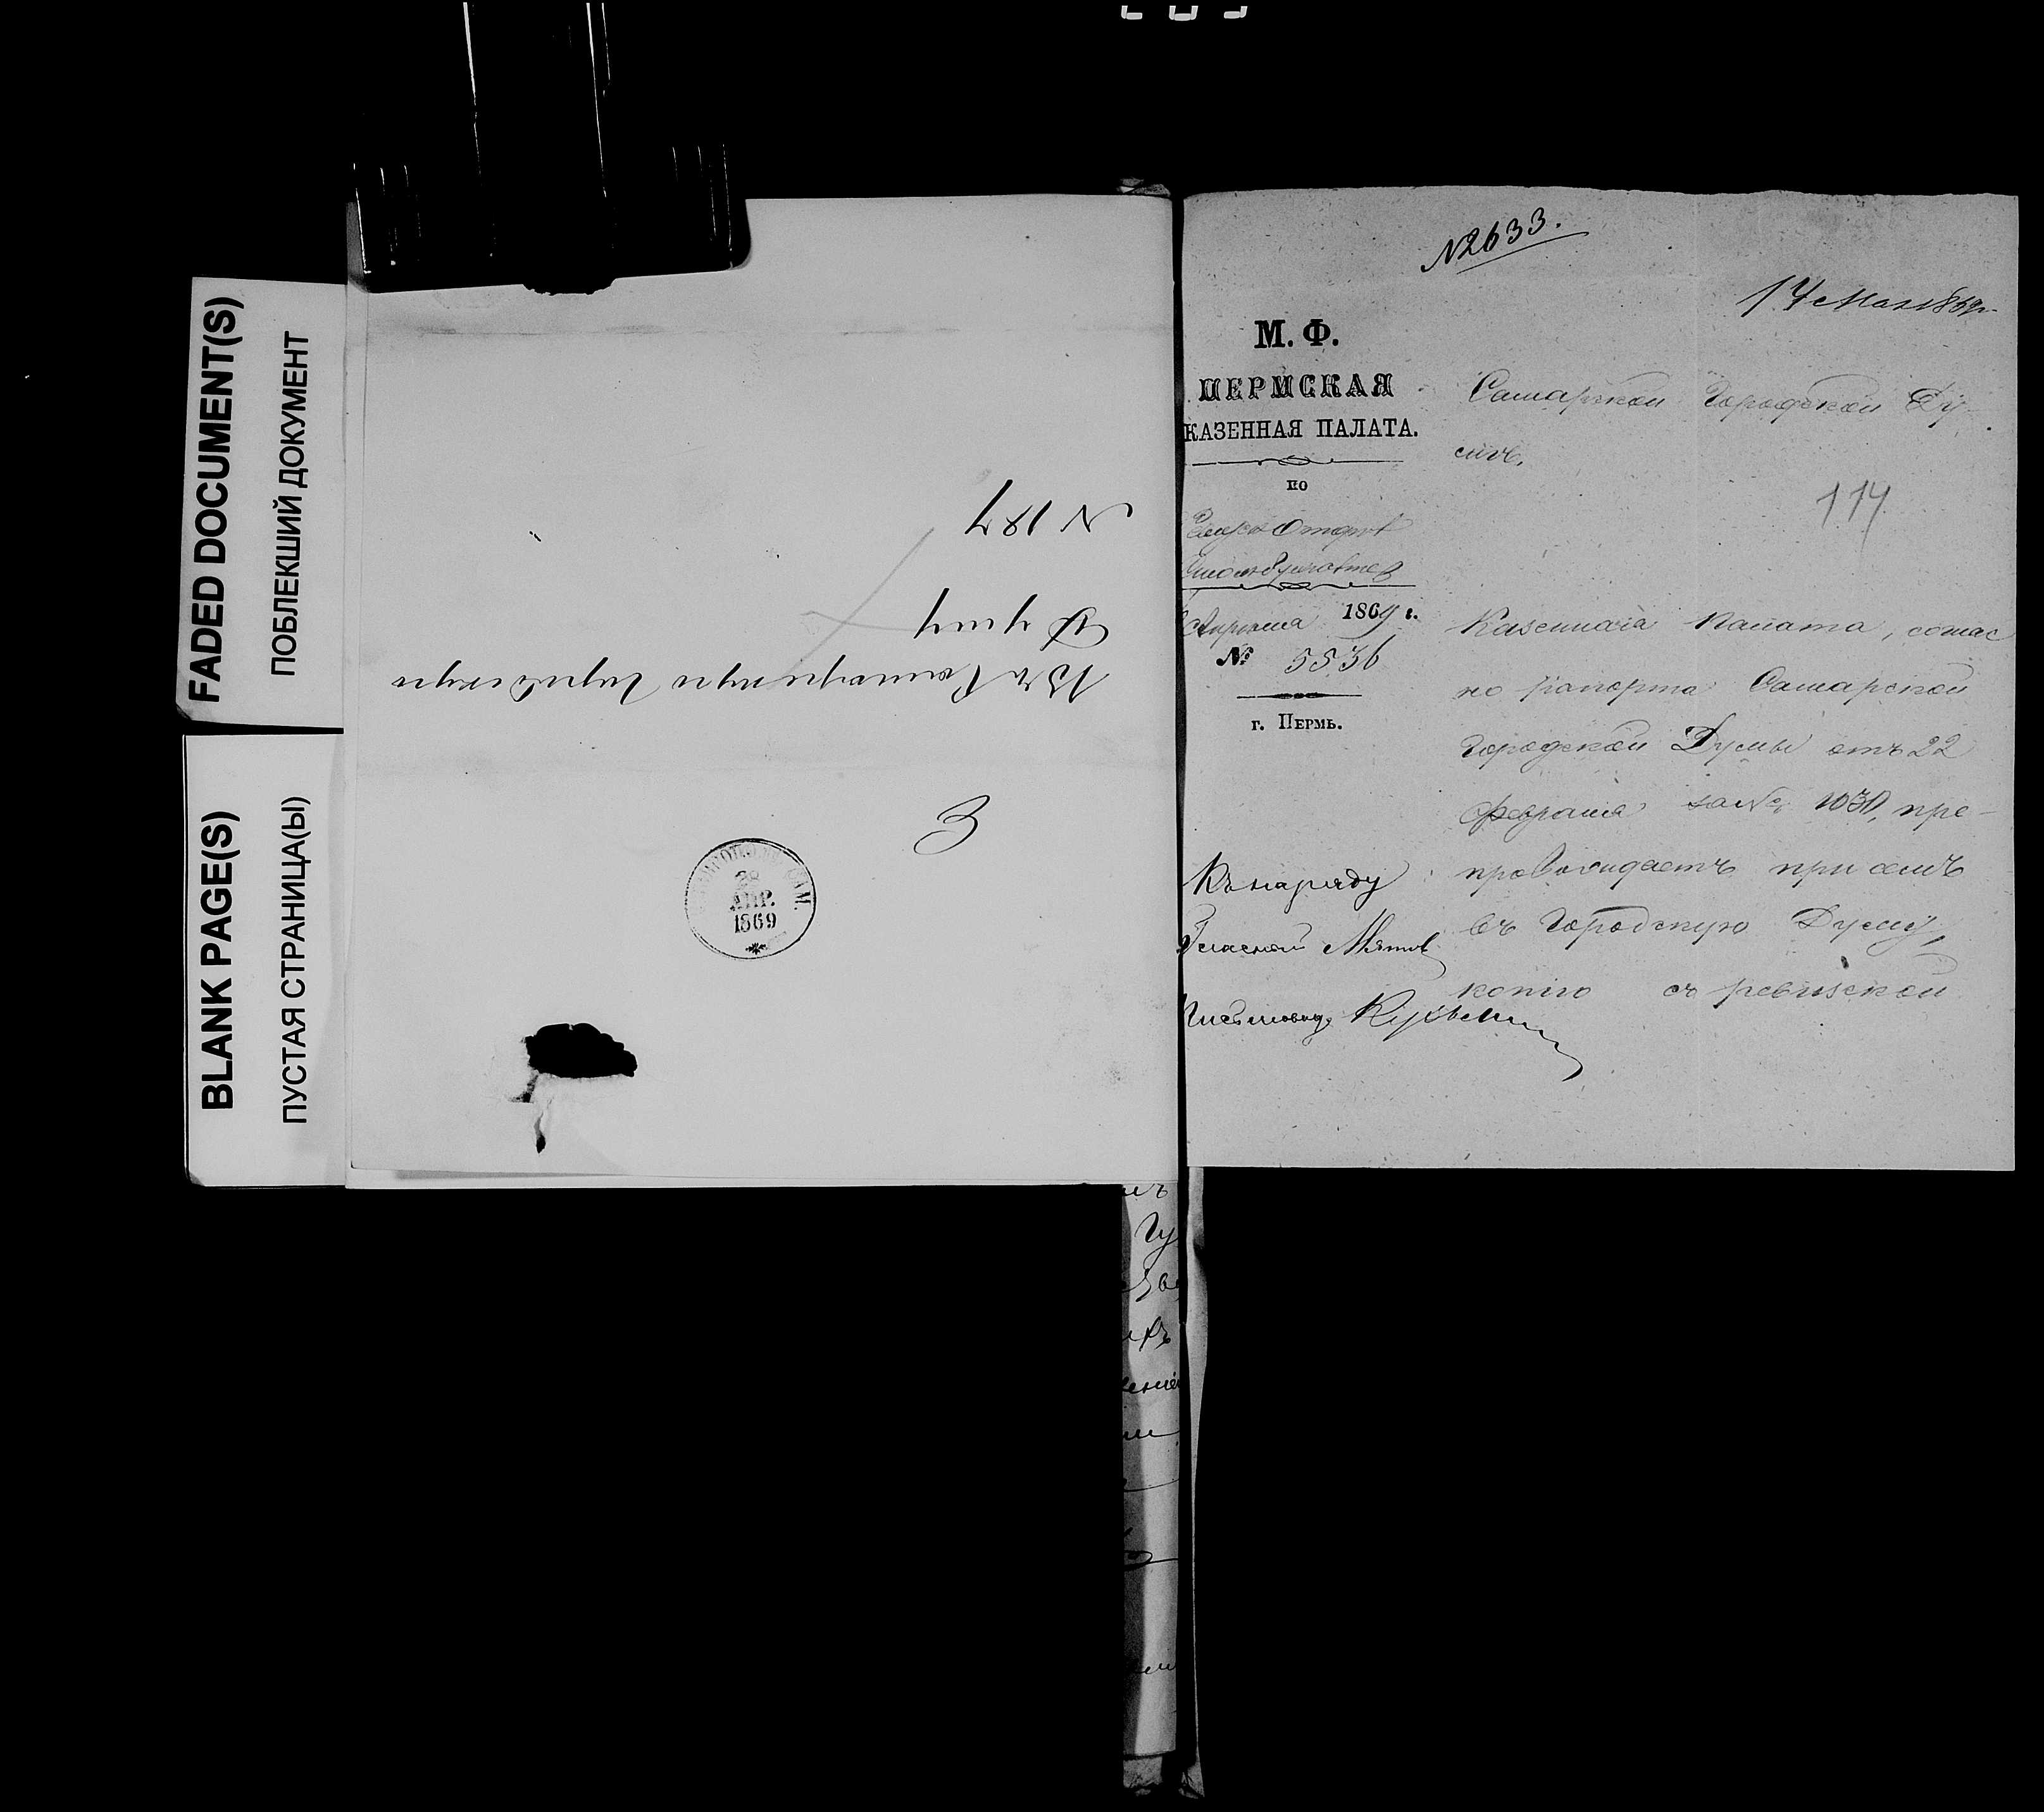 FADED DOCUMENT(S)
ПОБЛЕКШИЙ ДОКУМЕНТ
BLANK PAGE(S)
ПУСТАЯ СТРАНИЦА(Ы)
Въ Самарскую Городскую
Думу
№ 187
28
АПР.
1869
САМ.
№ 2633.
14 Мая 1869 г.
М. Ф.
ПЕРМСКАЯ
КАЗЕННАЯ ПАЛАТА.
по
1869 г.
№ 5536
г. Пермь.
Самарской Городской Ду-
мѣ.
114
Казенная Палата, соглас
но рапорта Самарской
Городской Думы отъ 22
Февраля за № 1030, пре-
провождаетъ при семъ
въ Городскую Думу,
копію съ ревизской
Къ наряду
Гласный